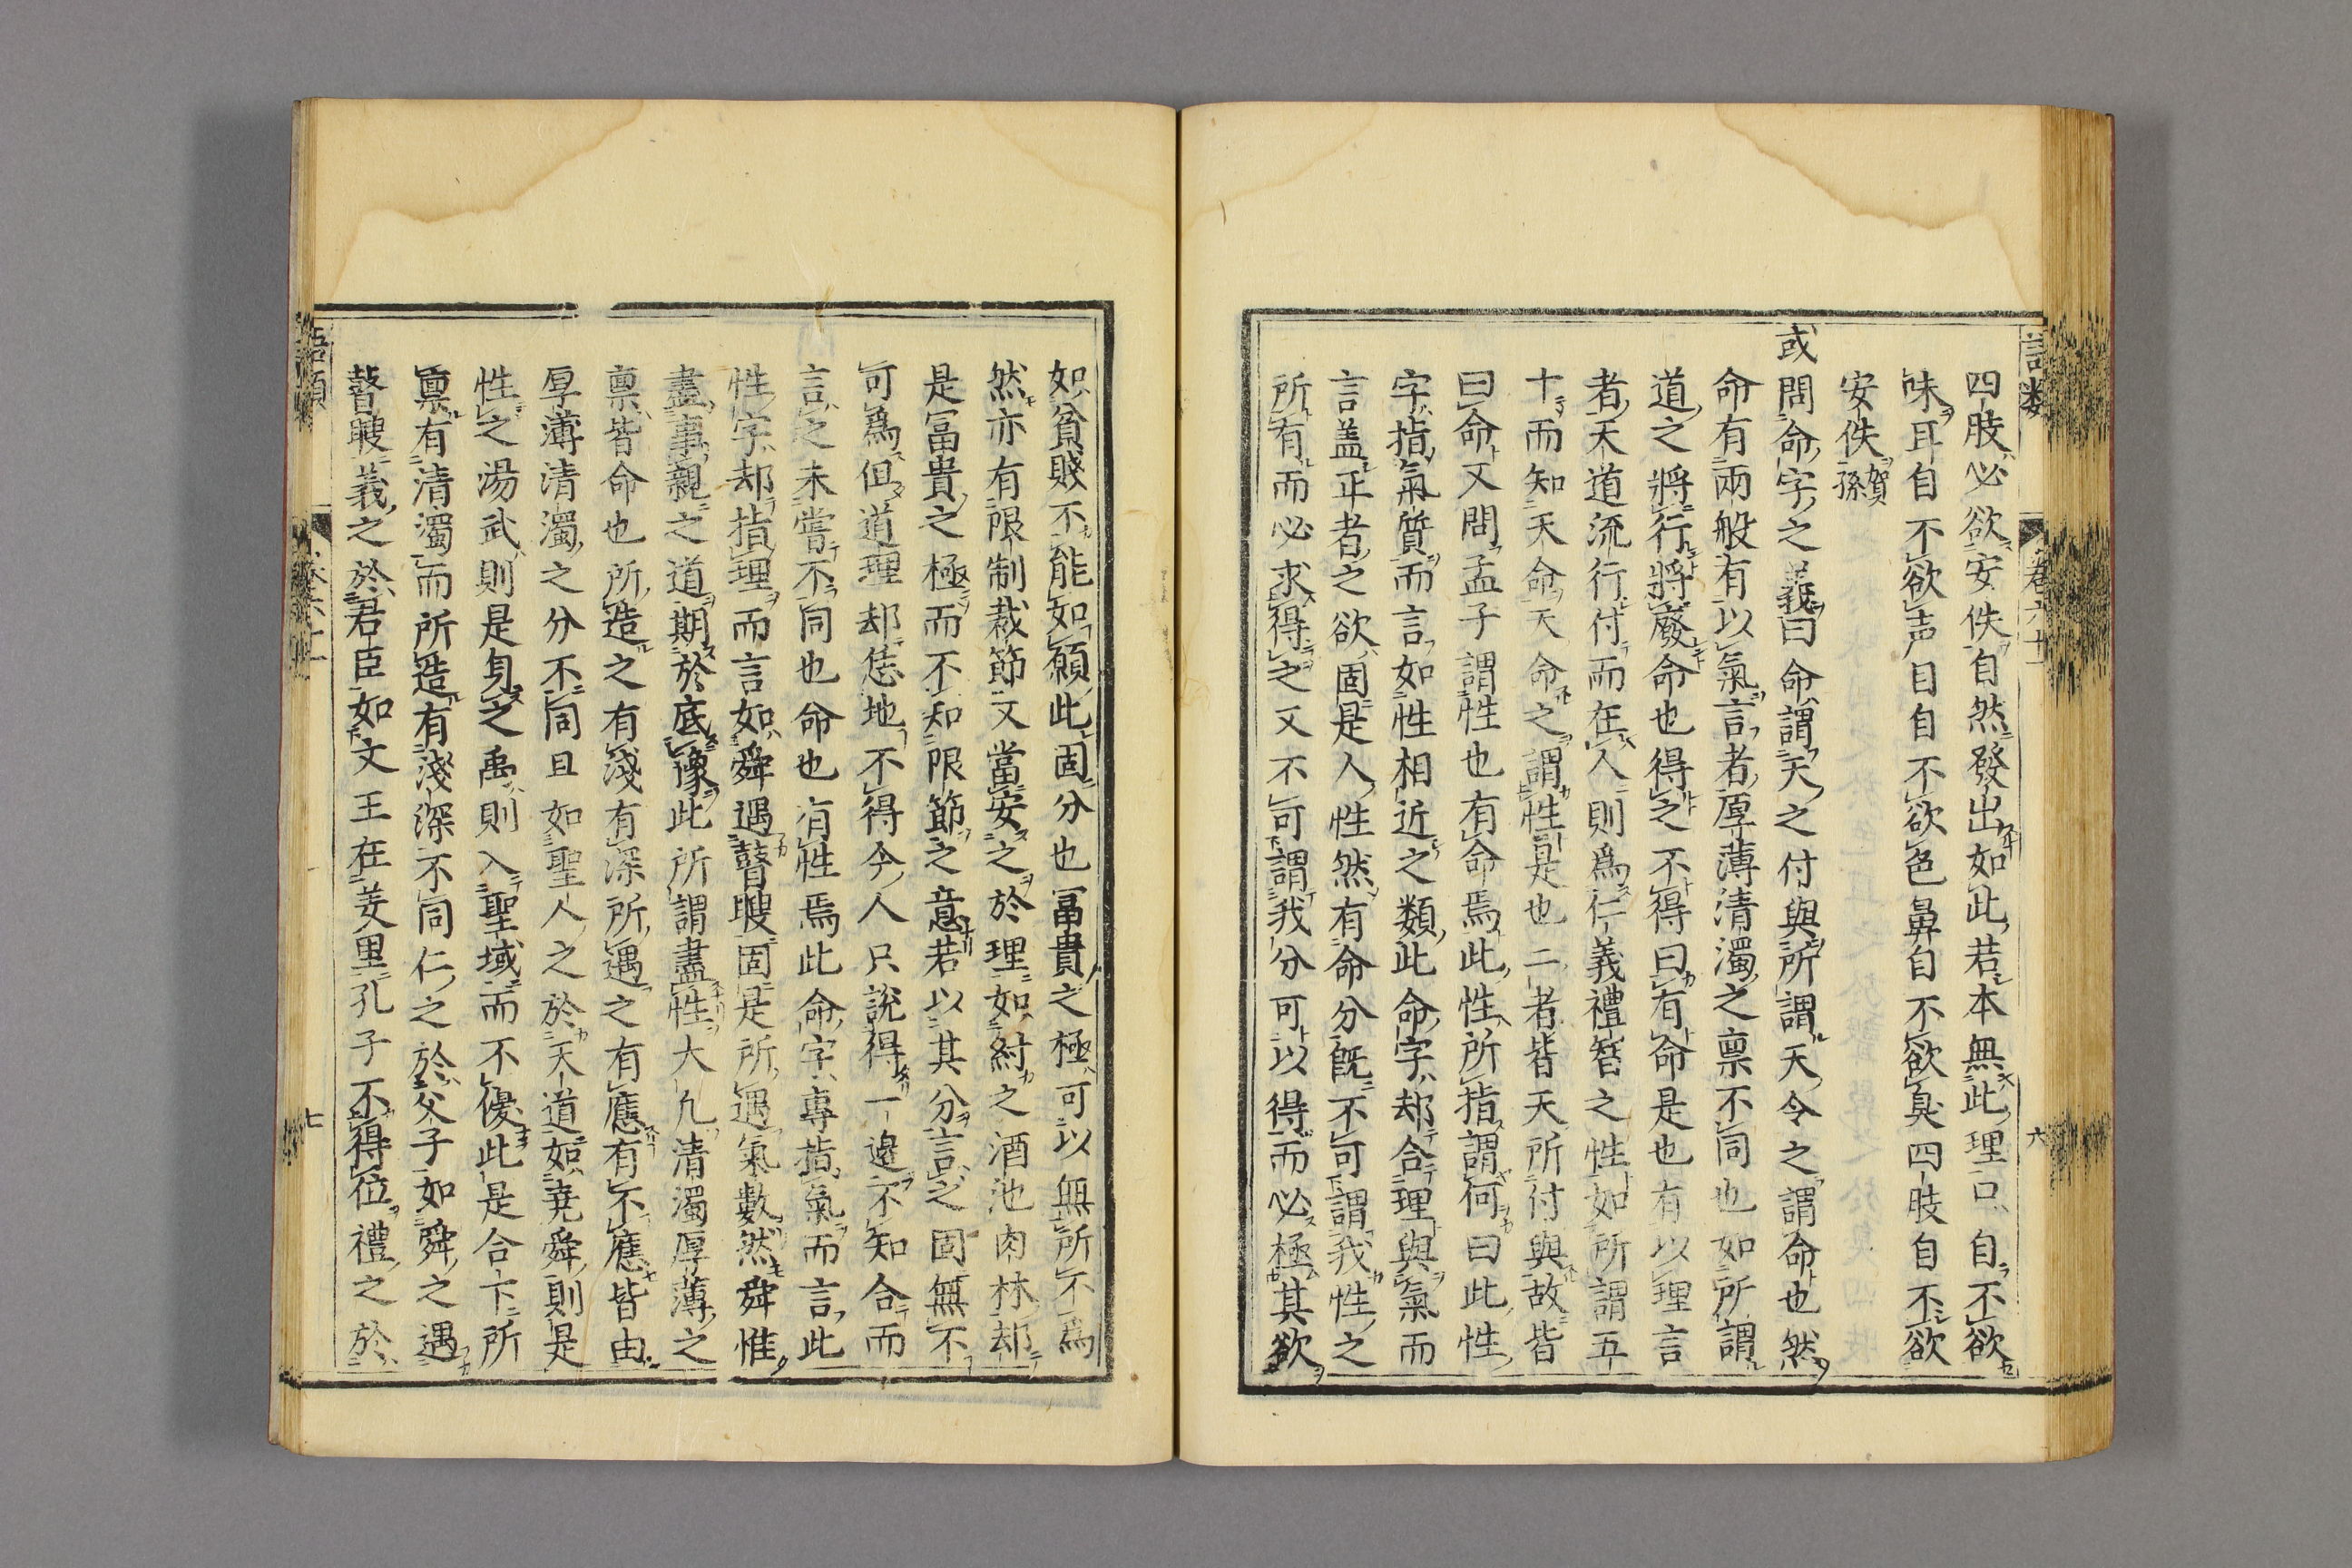 四肢必欲安佚自然發出如此若本無此理口自不欲
味耳自不欲声目自不欲色鼻自不欲臭四肢自不欲
安佚賀孫
或問命字之義曰命謂天之付與所謂天令之謂命也然
命有兩般有以氣言者厚薄清濁之稟不同也如所謂
道之將行將廢命也得之不得曰有命是也有以理言
者天道流行付而在人則為仁義禮智之性如所謂五
十而知天命天命之謂性是也二者皆天所付與故皆
曰命又問孟子謂性也有命焉此性所指謂何曰此性
字指氣質而言如性相近之類此命字却合理與氣而
言盖正者之欲固是人性然有命分既不可謂我性之
所有而必求得之又不可謂我分可以得而必極其欲
如貧賤不能如願此固分也冨貴之極可以無所不為
然亦有限制裁節又當安之於理如紂之酒池肉林却
是冨貴之極而不知限節之意若以其分言之固無不
可為但道理却恁地不得今人只說得一邊不知合而
言之未嘗不同也命也有性焉此命字專指氣而言此
性字却指理而言如舜遇瞽瞍固是所遇氣數然舜惟
盡事親之道期於底豫此所謂盡性大凡清濁厚薄之
稟皆命也所造之有淺有深所遇之有應有不應皆由
厚薄清濁之分不同且如聖人之於天道如堯舜則是
性之湯武則是身之禹則入聖域而不優此是合下所
稟有清濁而所造有淺深不同仁之於父子如舜之遇
瞽瞍義之於君臣如文王在羑里孔子不得位禮之於
語類
卷六十一
六
七